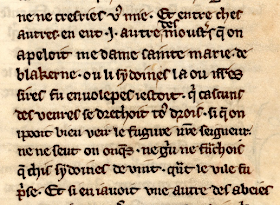 ne ne creſries vꝰ mie · Et entre ches
autres en eut · J · autre des mouſtꝰs q̃ on
apeloit me dame ſainte marie de
blakerne · ou li ſydoines la ou nſſes
ſires fu envolepes i eſtoit · q̃ caſcuns
des venres ſe drechoit tꝰ drois · ſi q̃ on
i pooit bien veir le figure nſſe ſeigneur ·
ne ne ſeut on onq̃s · ne griu ne franchois
q̃ chis ſydoines devint · q̃nt le vile fu
pͥſe · Et ſi en i avoit une autre des abeies